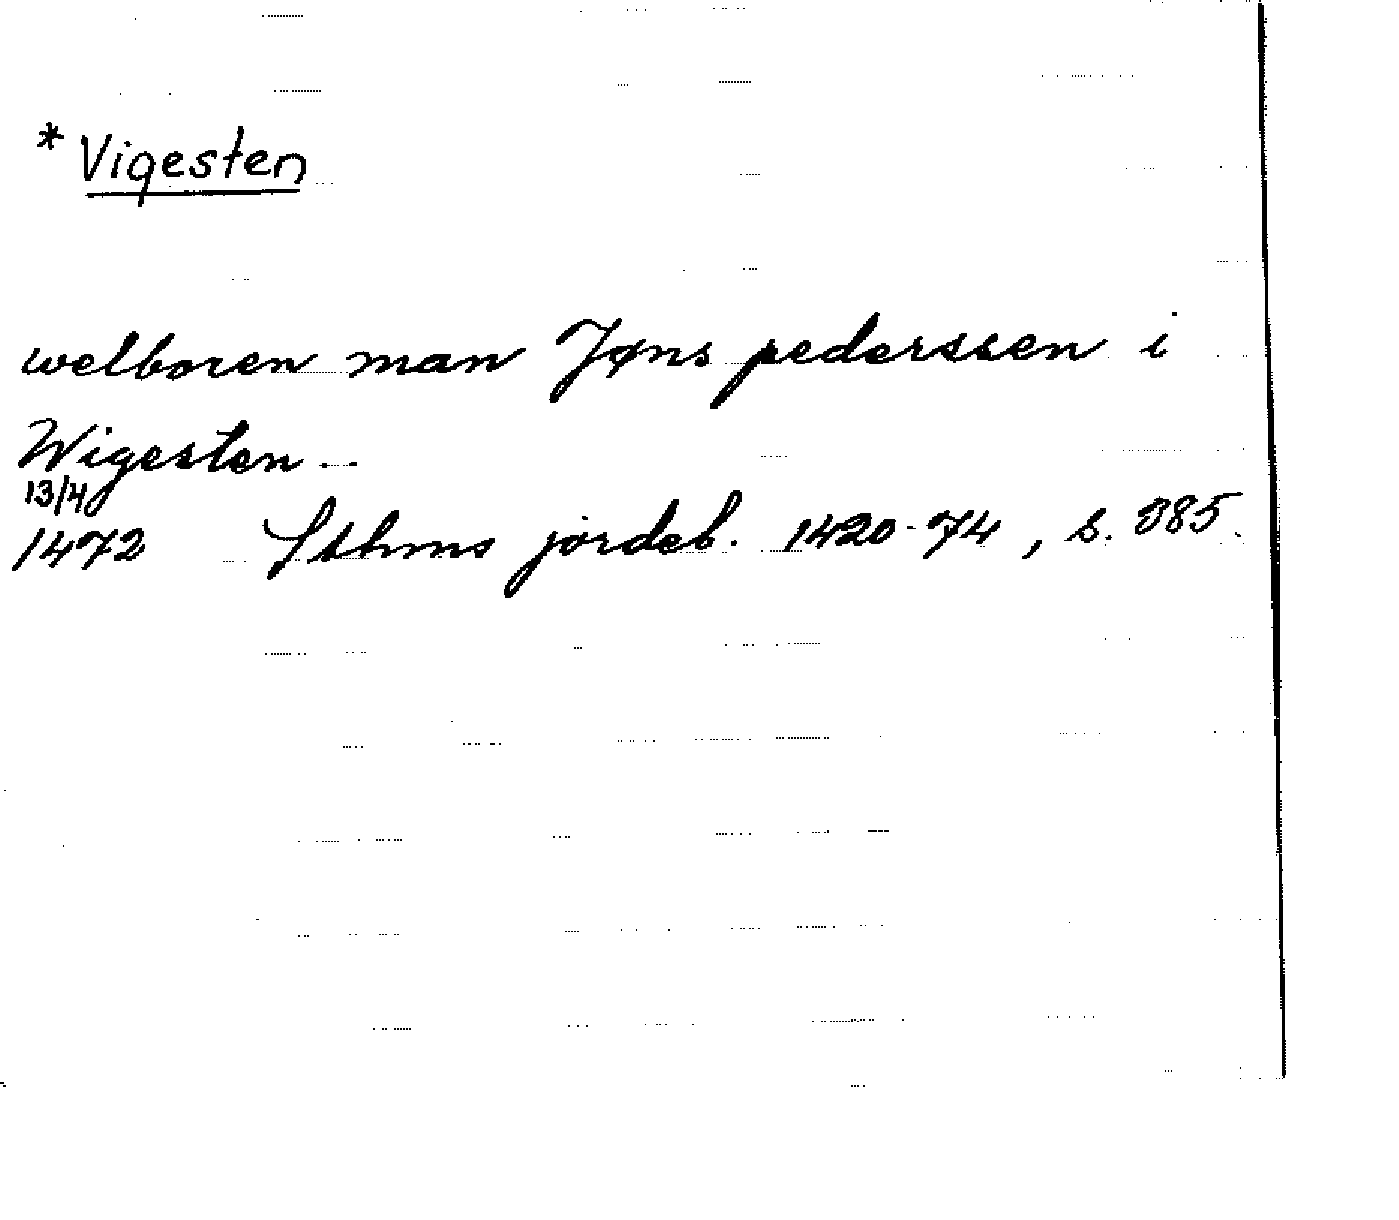 * Vigesten
welboren man Jøns pederssen i
Wigesten..
13/4
1472 Sthms jordeb. 1420-74, s. 385.